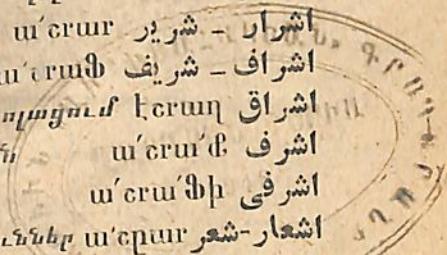 ա՛շրար اشرار - شرير
ա՛շրաֆ اشراف - شريف
էշրաղ اشراق
ա՛շրա՛ֆ اشرف
ա՛շրա՛ֆի اشرفی
ա՛շըար اشعار-شعر